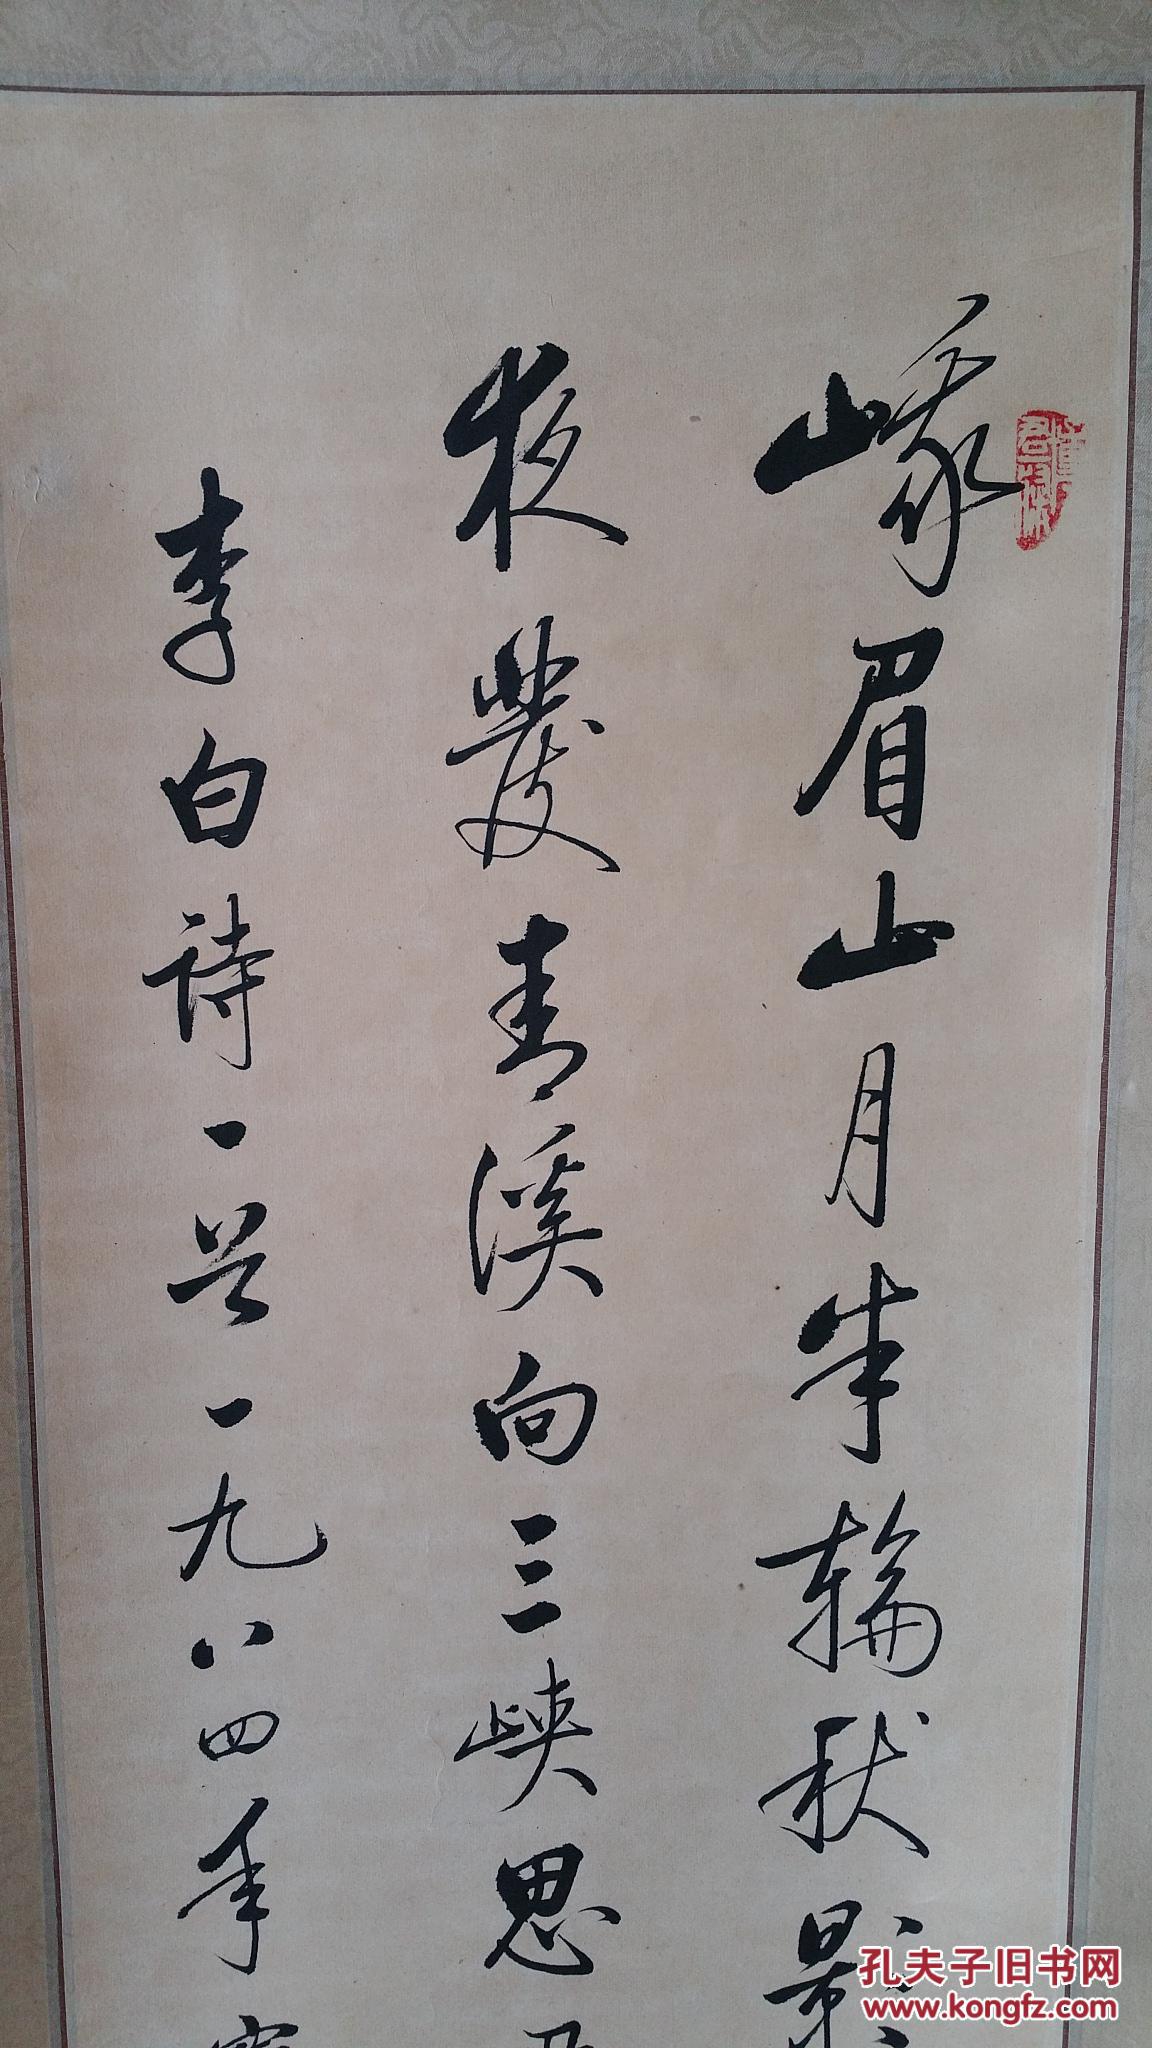 峨眉山月半輪秋影
夜發青溪向三峽思
李白詩一首一九八四年
孔夫子旧书网
www.kongfz.com